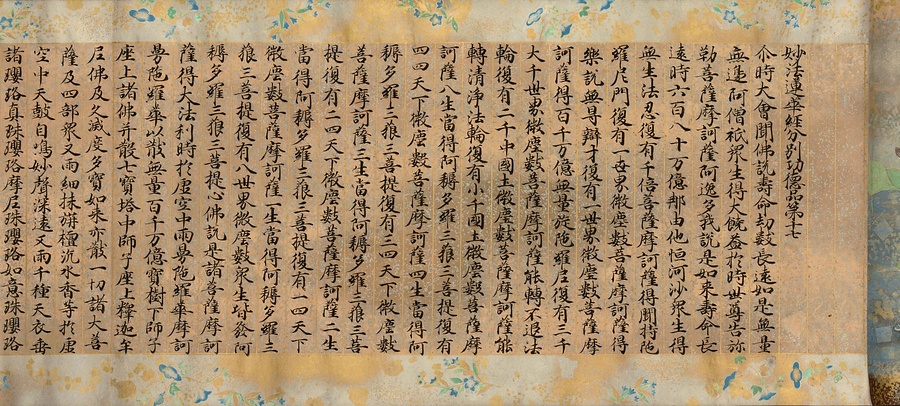 妙法蓮華經分別功德品第十七
尒時大會聞佛說壽命劫數長遠如是無量
無邊阿僧祇眾生得大饒益於時世尊告弥
勒菩薩摩訶薩阿逸多我說是如來壽命長
遠時六百八十万億那由他恒河沙眾生得
無生法忍復有千倍菩薩摩訶薩得聞持陁
羅尼門復有一世界微塵數菩薩摩訶薩得
樂說無㝵辯才復有一世界微塵數菩薩摩
訶薩得百千万億無量旋陁羅尼復有三千
大千世界微塵數菩薩摩訶薩能轉不退法
輪復有二千中國土微塵數菩薩摩訶薩能
轉清淨法輪復有小千國土微塵數菩薩摩
訶薩八生當得阿耨多羅三藐三菩提復有
四四天下微塵數菩薩摩訶薩四生當得阿
耨多羅三藐三菩提復有三四天下微塵數
菩薩摩訶薩三生當得阿耨多羅三藐三菩
提復有二四天下微塵數菩薩摩訶薩二生
當得阿耨多羅三藐三菩提復有一四天下
微塵數菩薩摩訶薩一生當得阿耨多羅三
藐三菩提復有八世界微塵數眾生皆發阿
耨多羅三藐三菩提心佛說是諸菩薩摩訶
薩得大法利時於虛空中雨曼陁羅華摩訶
曼陁羅華以散無量百千万億寶樹下師子
座上諸佛并散七寶塔中師子座上釋迦牟
尼佛及久滅度多寶如來亦散一切諸大菩
薩及四部眾又雨細抹栴檀沉水香等於虛
空中天鼓自鳴妙聲深遠又雨千種天衣垂
諸瓔珞真珠瓔珞摩尼珠瓔珞如意珠瓔珞